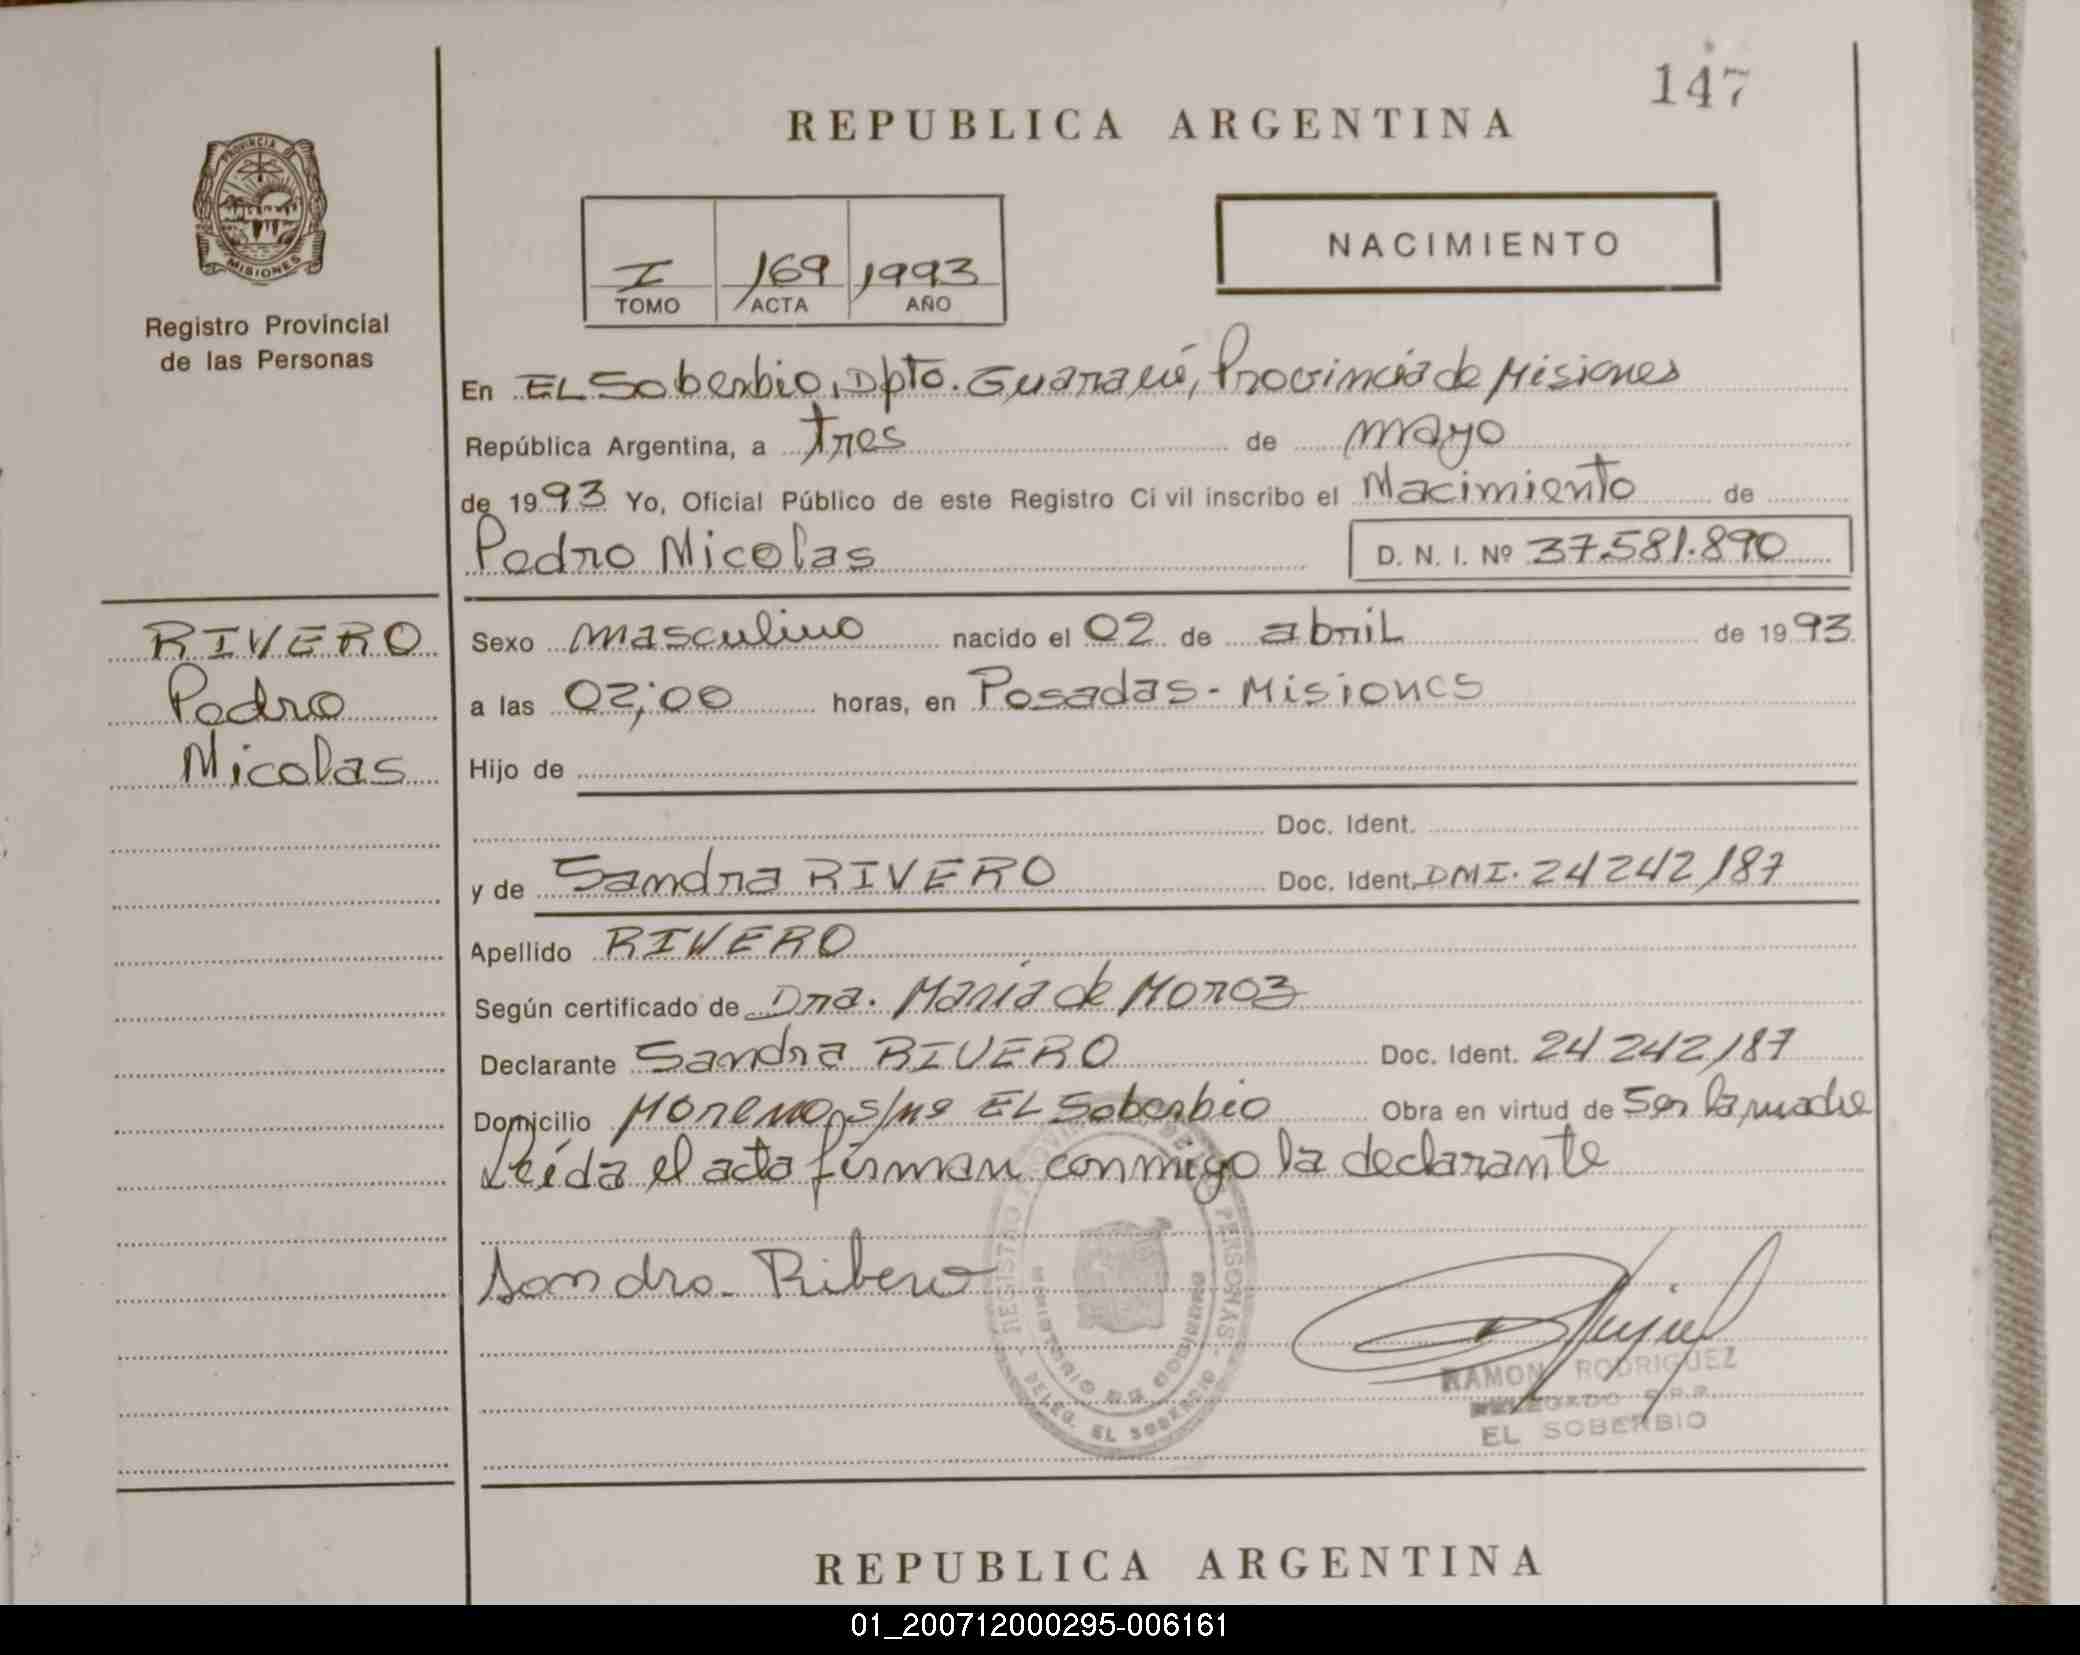 147
REPUBLICA ARGENTINA
PROVINCIA DE
MISIONES
Registro Provincial
de las Personas
I 169 1993
TOMO ACTA AÑO
NACIMIENTO
En EL Soberbio, Dpto. Guaraní, Provincia de Misiones
República Argentina, a tres de mayo
de 1993 Yo, Oficial Público de este Registro Ci vil inscribo el Nacimiento de
Pedro Nicolas D. N. I. Nº 37.581.890
RIVERO
Pedro
Nicolas
Sexo masculino nacido el 02 de abril de 1993
a las 02;00 horas, en Posadas - Misiones
Hijo de
Doc. Ident.
y de Sandra RIVERO Doc. Ident. DNI. 24 242 187
Apellido RIVERO
Según certificado de Dra. Maria de Moroz
Declarante Sandra RIVERO Doc. Ident. 24 242 187
Domicilio Moreno s/nº EL Soberbio Obra en virtud de Ser la madre
Leída el acta firman conmigo la declarante
Sandra Ribero
REGISTRO PROVINCIAL DE LAS PERSONAS
MINISTERIO DE GOBIERNO
DELEG. EL SOBERBIO
RAMON RODRIGUEZ
DELEGADO R.P.P.
EL SOBERBIO
REPUBLICA ARGENTINA
01_200712000295-006161